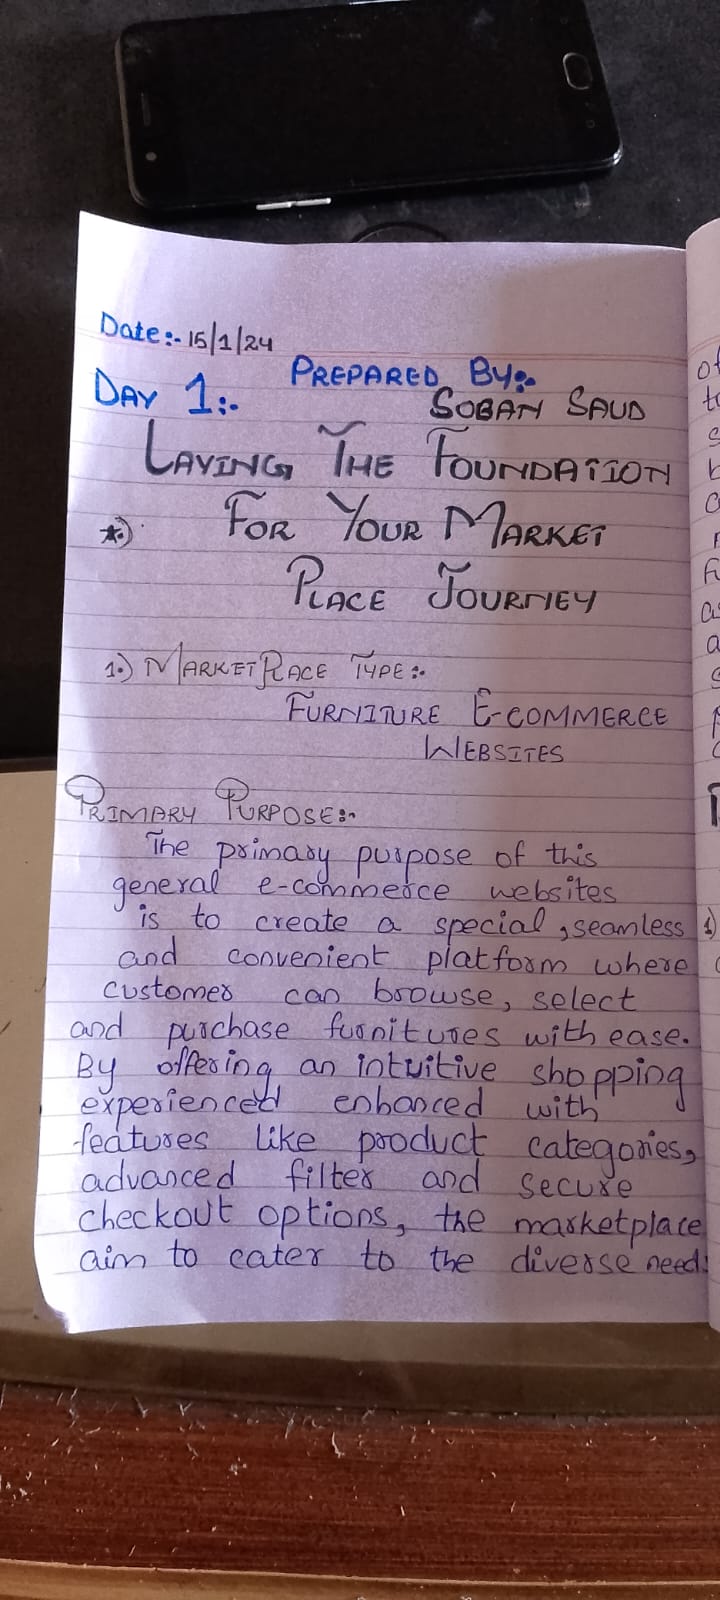 Date:- 15/1/24
PREPARED BY:-
DAY 1:-
SOBAN SAUD
LAYING THE FOUNDATION
*) FOR YOUR MARKET
PLACE JOURNEY
1.) MARKETPLACE TYPE:-
FURNITURE E-COMMERCE
WEBSITES
PRIMARY PURPOSE:-
The primary purpose of this
general e-commerce websites
is to create a special, seamless
and convenient platform where
customer can browse, select
and purchase furnitures with ease.
By offering an intuitive shopping
experienced enhanced with
features like product categories,
advanced filter and secure
checkout options, the marketplace
aim to cater to the diverse needs